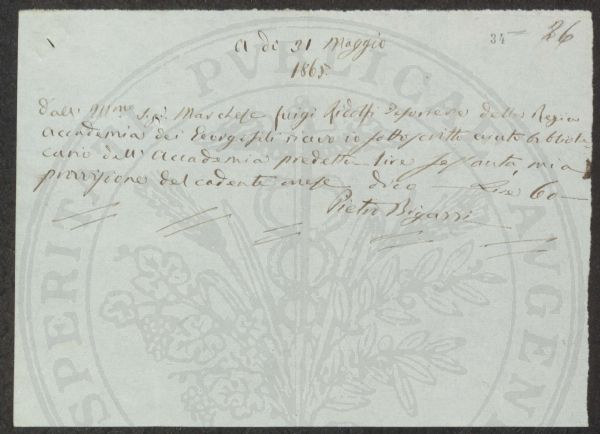 34
26
A dì 31 Maggio
1865.
Dall' Illmo Sigr Marchese Luigi Ridolfi Tesoriere della Regia
Accademia dei Georgofili ricevo io sottoscritto bibliote-
cario dell' Accademia predetta lire sessanta, mia
provvisione del cadente mese dico Lire 60 —
Pietro Bigazzi
PROSPERITATI PUBLICAE AUGENDAE